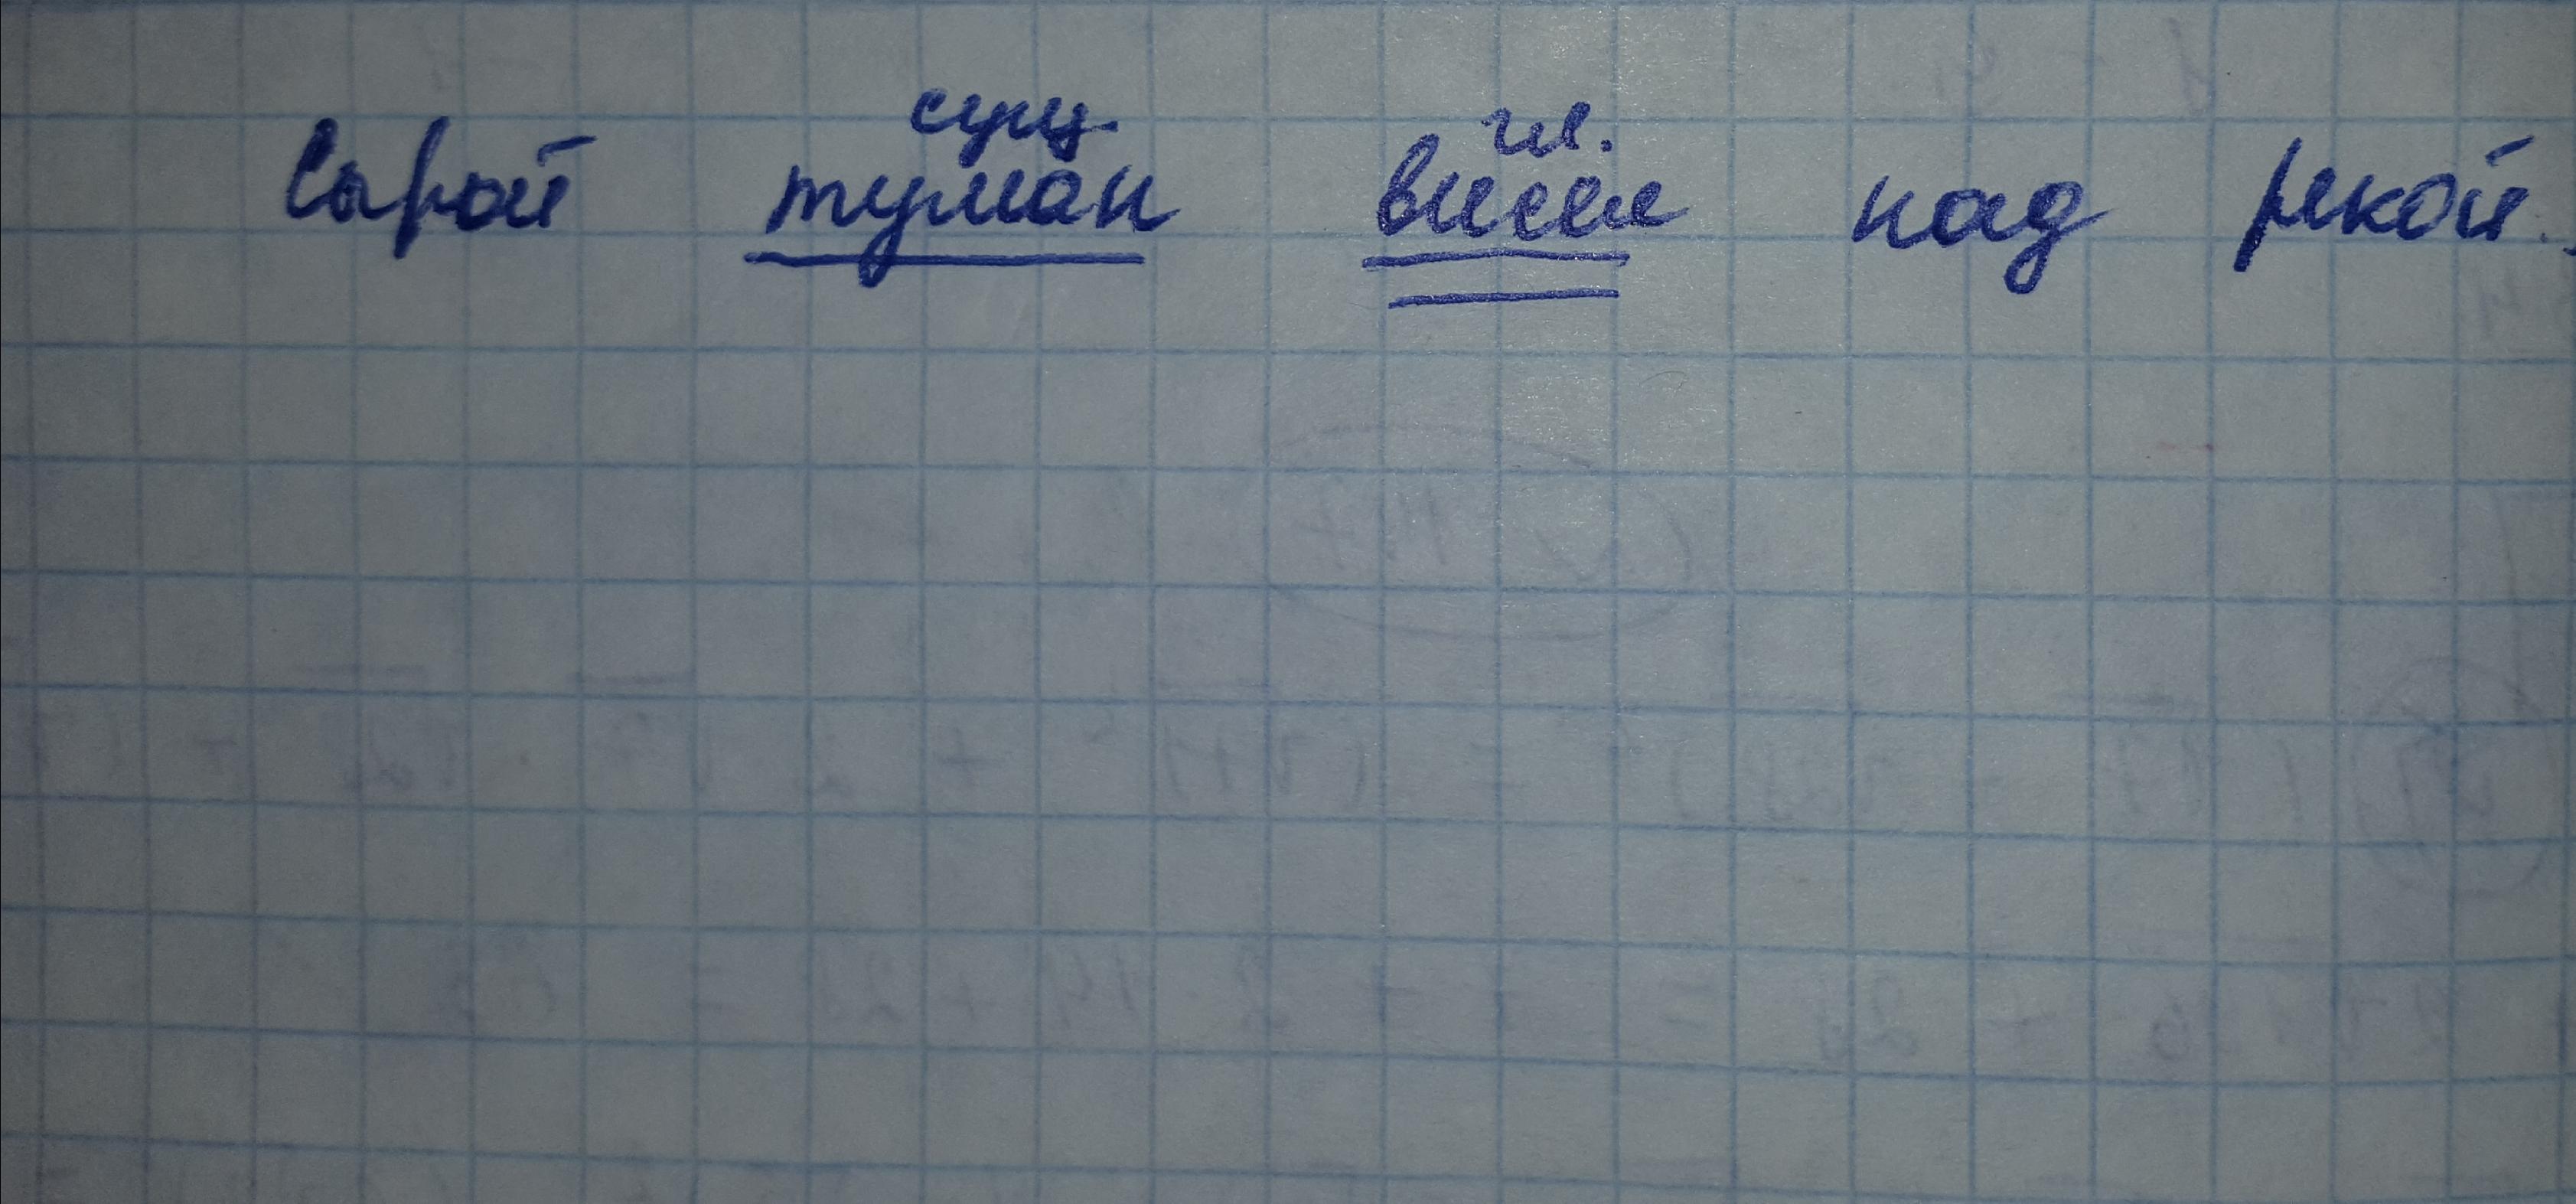 сущ. гл.
Сырой туман висел над рекой.